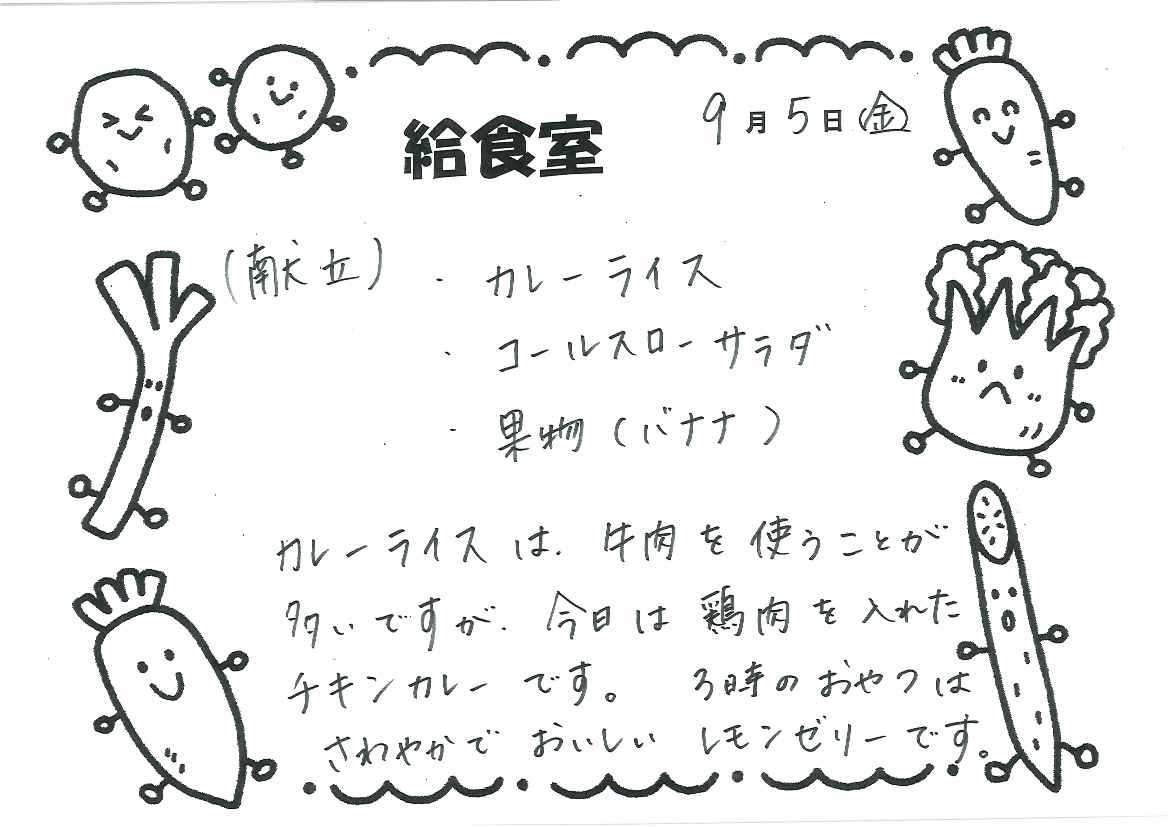 給食室
9月5日(金)
(献立) ・ カレーライス
・ コールスローサラダ
・ 果物(バナナ)
カレーライスは、牛肉を使うことが
多いですが、今日は鶏肉を入れた
チキンカレーです。 3時のおやつは
さわやかで おいしい レモンゼリーです。